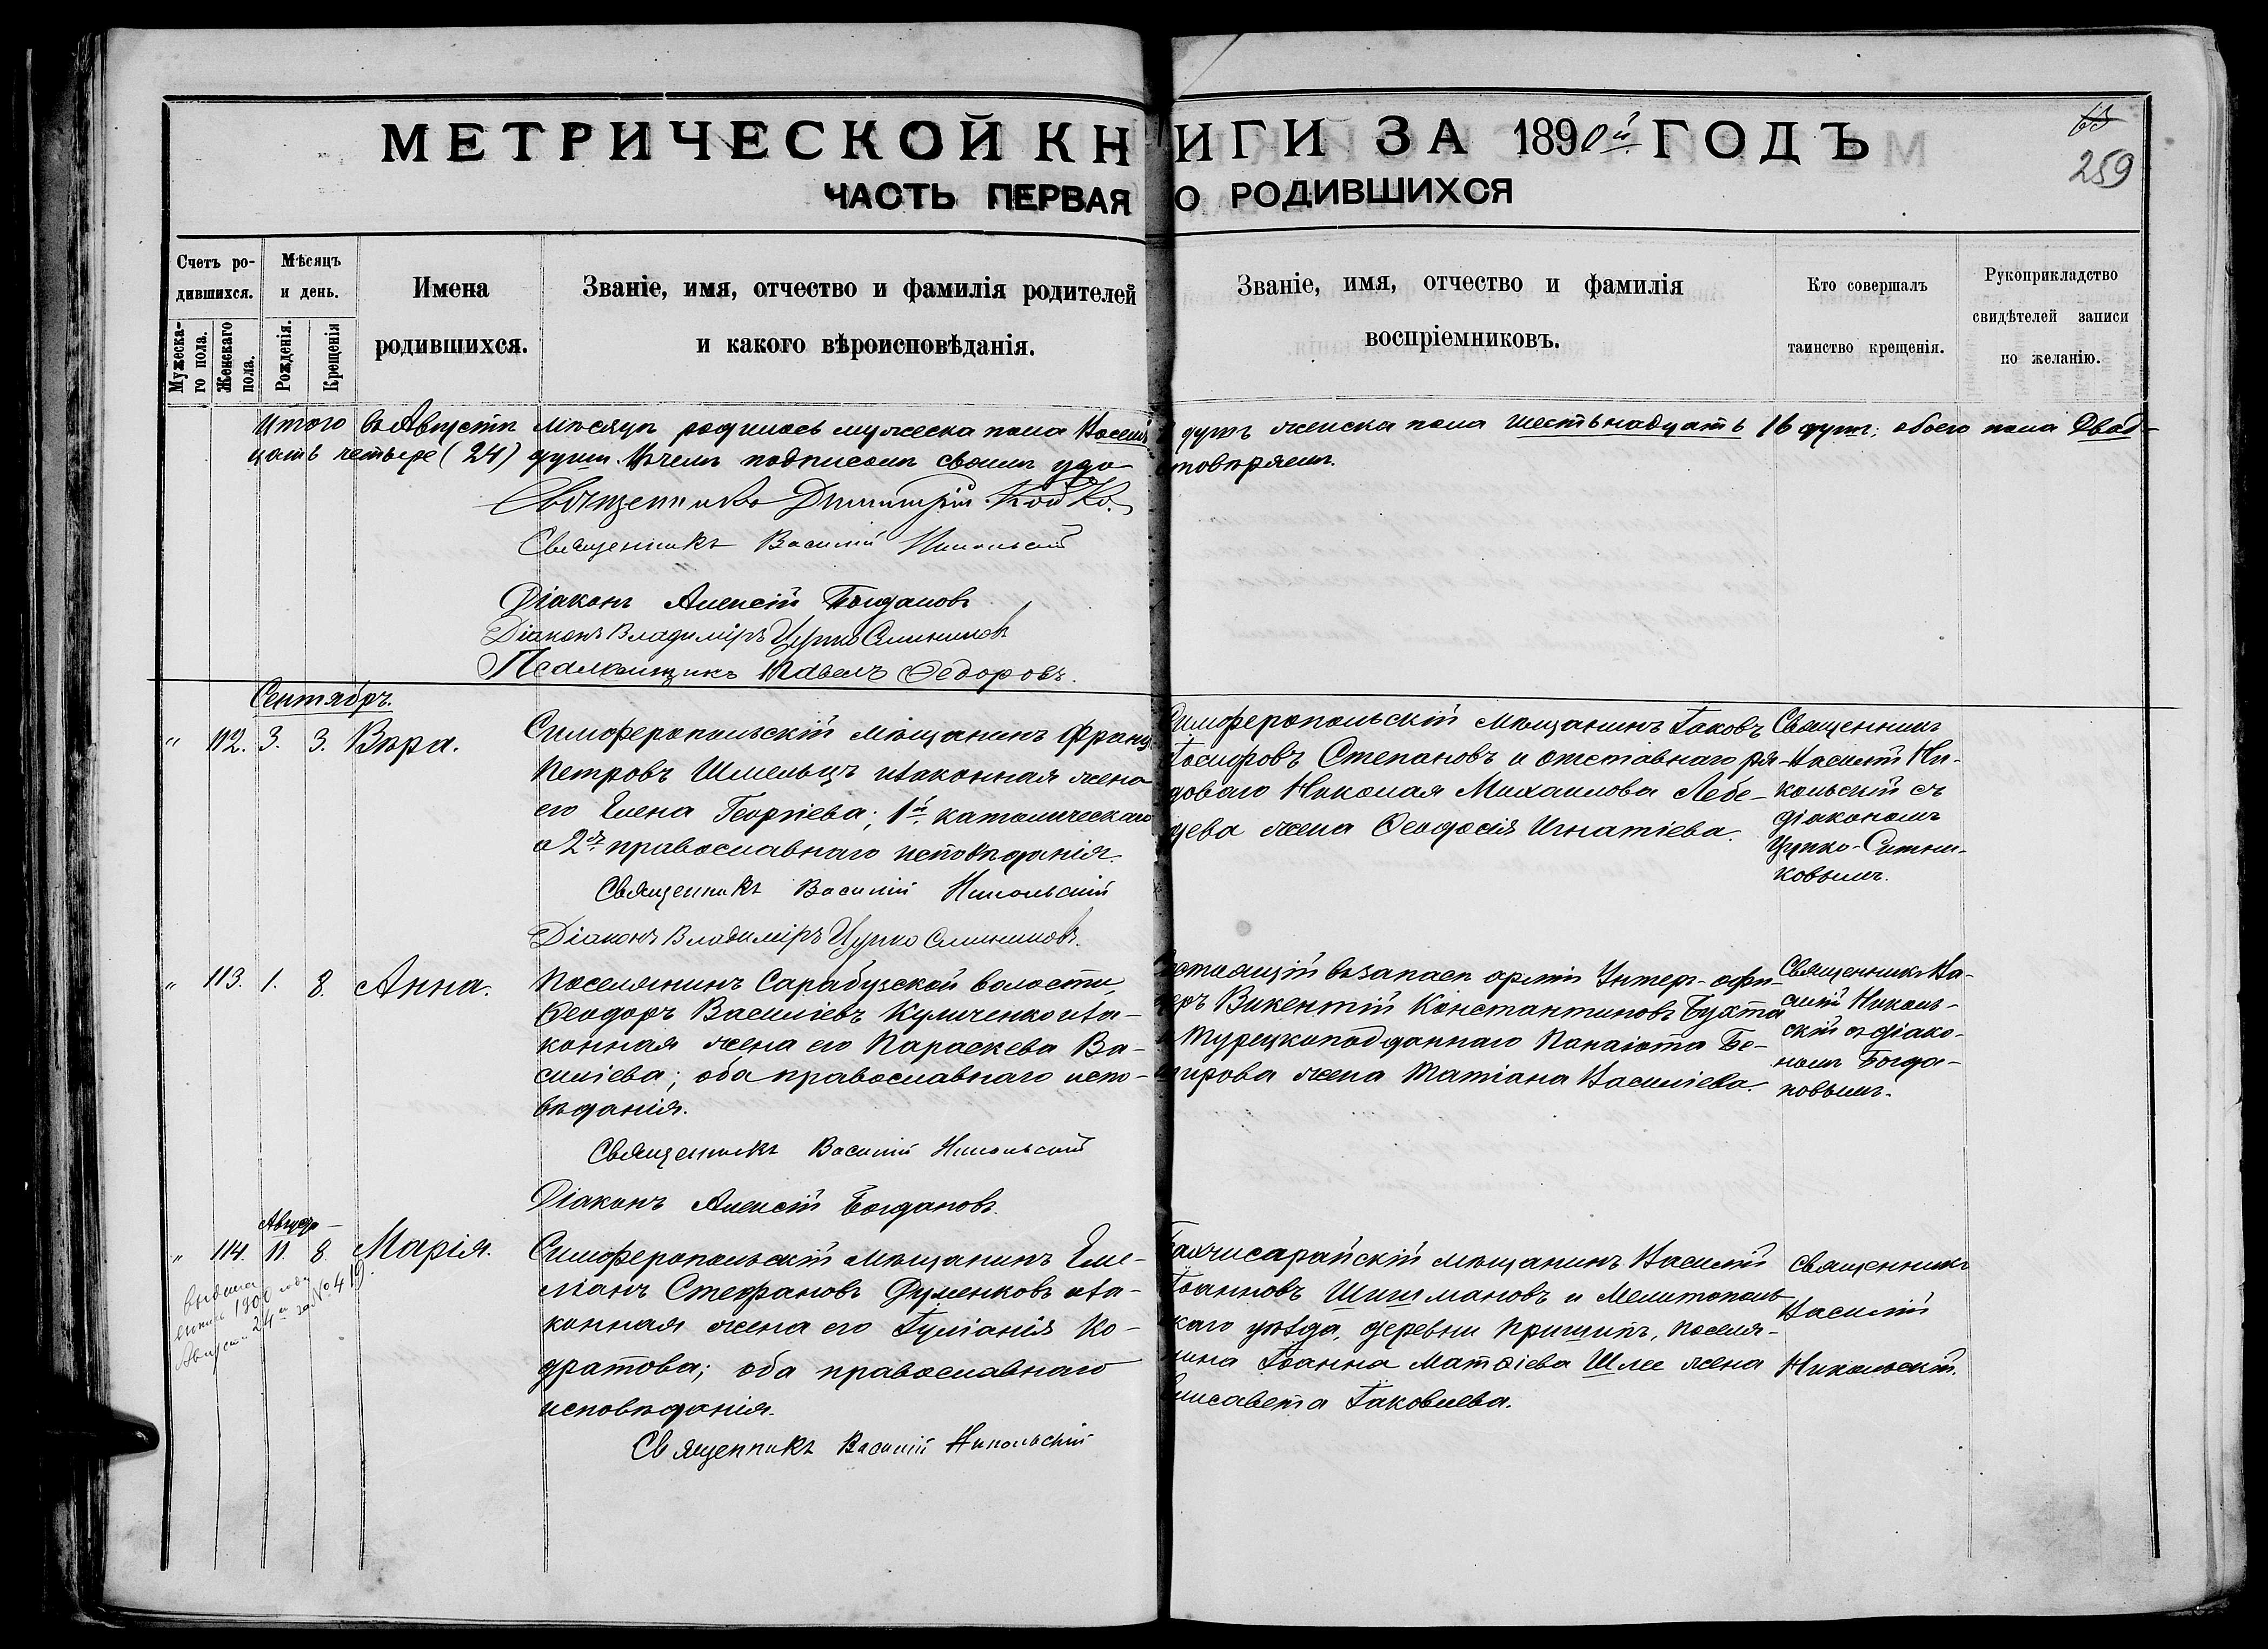 МЕТРИЧЕСКОЙ КНИГИ ЗА 1890й ГОДЪ
63
259
ЧАСТЬ ПЕРВАЯ О РОДИВШИХСЯ
Счетъ ро-
дившихся.
Мужеска-
го пола.
Женскаго
пола.
Мѣсяцъ
и день.
Рожденія.
Крещенія
Имена
родившихся.
Званіе, имя, отчество и фамилія родителей
и какого вѣроисповѣданія.
Званіе, имя, отчество и фамилія
воспріемниковъ.
Кто совершалъ
таинство крещенія.
Рукоприкладство
свидѣтелей записи
по желанію.
Итого въ Августѣ мѣсяцѣ родилось мужеска пола Восемь 8 душъ женска пола шестьнадцать 16 душъ; обоего пола Двад-
цать четыре (24) души. Въ чемъ подписомъ своимъ удостовѣряемъ.
Священникъ Димитрій Койко.
Священникъ Василій Никольскій
Діаконъ Алексій Богдановъ
Діаконъ Владиміръ Цупко Ситниковъ
Псаломщикъ Павелъ Ѳедоровъ.
Сентябрь.
" 112. 3. 3. Вѣра.
Симферопольскій мѣщанинъ Франц
Петровъ Шмельцъ и законная жена
его Елена Георгіева; 1й католическаго
а 2я православнаго исповѣданія.
Священникъ Василій Никольскій
Діаконъ Владиміръ Цупко Ситниковъ.
Симферопольскій мѣщанинъ Іаковъ
Іосифовъ Степановъ и отставнаго ря-
доваго Николая Михаилова Лебе-
дева жена Ѳеодосія Игнатіева.
Священникъ
Василій Ни-
кольскій съ
діакономъ
Цупко-Ситни-
ковымъ.
" 113. 1. 8. Анна.
Поселянинъ Сарабузской волости,
Ѳеодоръ Василіевъ Куличенко и за-
конная жена его Параскева Ва-
силіева; оба православнаго испо-
вѣданія.
Священникъ Василій Никольскій
Діаконъ Алексій Богдановъ.
Состоящій въ запасѣ арміи Унтеръ-офи-
церъ Викентій Константиновъ Бухта
и Турецкоподданнаго Панаіота Бе-
рова жена Татіана Василіева.
Священникъ Ва-
силій Николь-
скій съ діако-
номъ Богда-
новымъ.
Август
" 114. 11. 8. Марія.
Выдана
1900 года
Августа 24 за № 419.
Симферопольскій мѣщанинъ Еме-
ліанъ Стефановъ Думенковъ и за-
конная жена его Іуліанія Ко-
дратова; оба православнаго
исповѣданія.
Священникъ Василій Никольскій
Бахчисарайскій мѣщанинъ Василій
Іоанновъ Шишмановъ и Мелитополь-
скаго уѣзда, деревни Пришипъ, поселя-
нина Іоанна Матѳіева Шлее жена
Елисавета Іаковлева.
Священникъ
Василій
Никольскій.